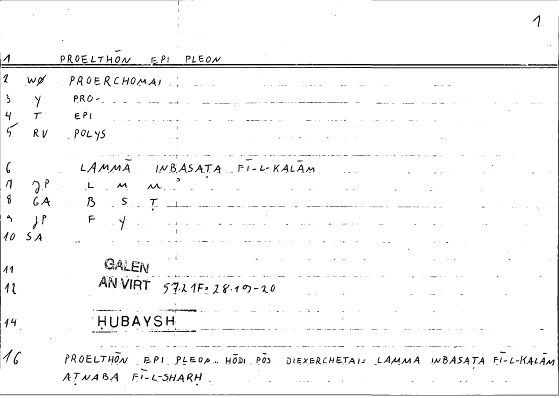 1
1 PROELTHŌN EPI PLEON
2 WØ PROERCHOMAI
3 Y PRO-
4 T EPI
5 RV POLYS
6 LAMMĀ INBASAṬA FĪ-L-KALĀM
7 JP L M M
8 GA B S Ṭ
9 JP F Y
10 SA
11 GALEN
12 AN VIRT 57.21F: 28.19-20
14 HUBAYSH
16 PROELTHŌN EPI PLEON HŌDI PŌS DIEXERCHETAI: LAMMA INBASAṬA FĪ-L-KALĀM
AṬNABA FĪ-L-SHARḤ